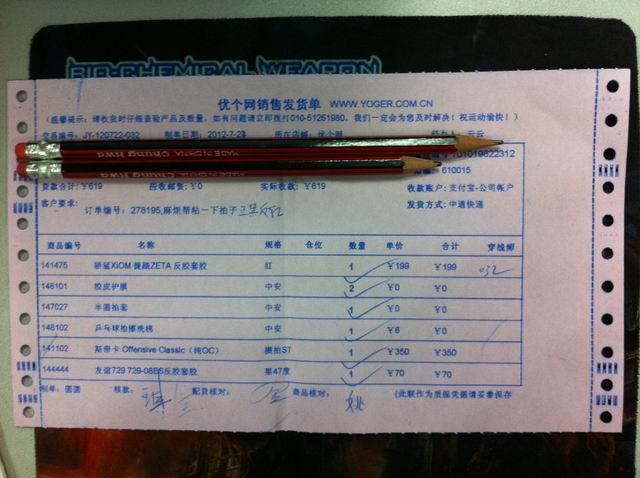 BIO-CHEMICAL WEAPON
优个网销售发货单 WWW.YOGER.COM.CN
(温馨提示：请收货时仔细查验产品及数量，如有问题请立即拨打010-51261980，我们一定会为您及时解决！祝运动愉快！)
交易编号: JY-120722-032 制单日期: 2012-7-23 所在店铺: 优个网
MADE IN CHINA Chung Hwa
MADE IN CHINA Chung Hwa
610015
货款合计: ￥619 应收邮费: ￥0 实际收款: ￥619 收款账户: 支付宝-公司帐户
客户要求: 订单编号：278195,麻烦帮粘一下拍子 发货方式: 中通快递
商品编号 名称 规格 仓位 数量 单价 合计 穿线师
141475 骄猛XIOM 捷踏ZETA 反胶套胶 红 1 ￥199 ￥199 032
148101 胶皮护膜 中安 2 ￥0 ￥0
147027 半圆拍套 中安 1 ￥0 ￥0
148102 乒乓球拍擦洗棉 中安 1 ￥6 ￥0
141102 斯帝卡 Offensive Classic（纯OC） 横拍ST 1 ￥350 ￥350
144444 友谊729 729-08ES反胶套胶 黑47度 1 ￥70 ￥70
制单: 圆圆 核款: 配货核对: 商品核对: 姚 (此联作为质保凭据请妥善保存